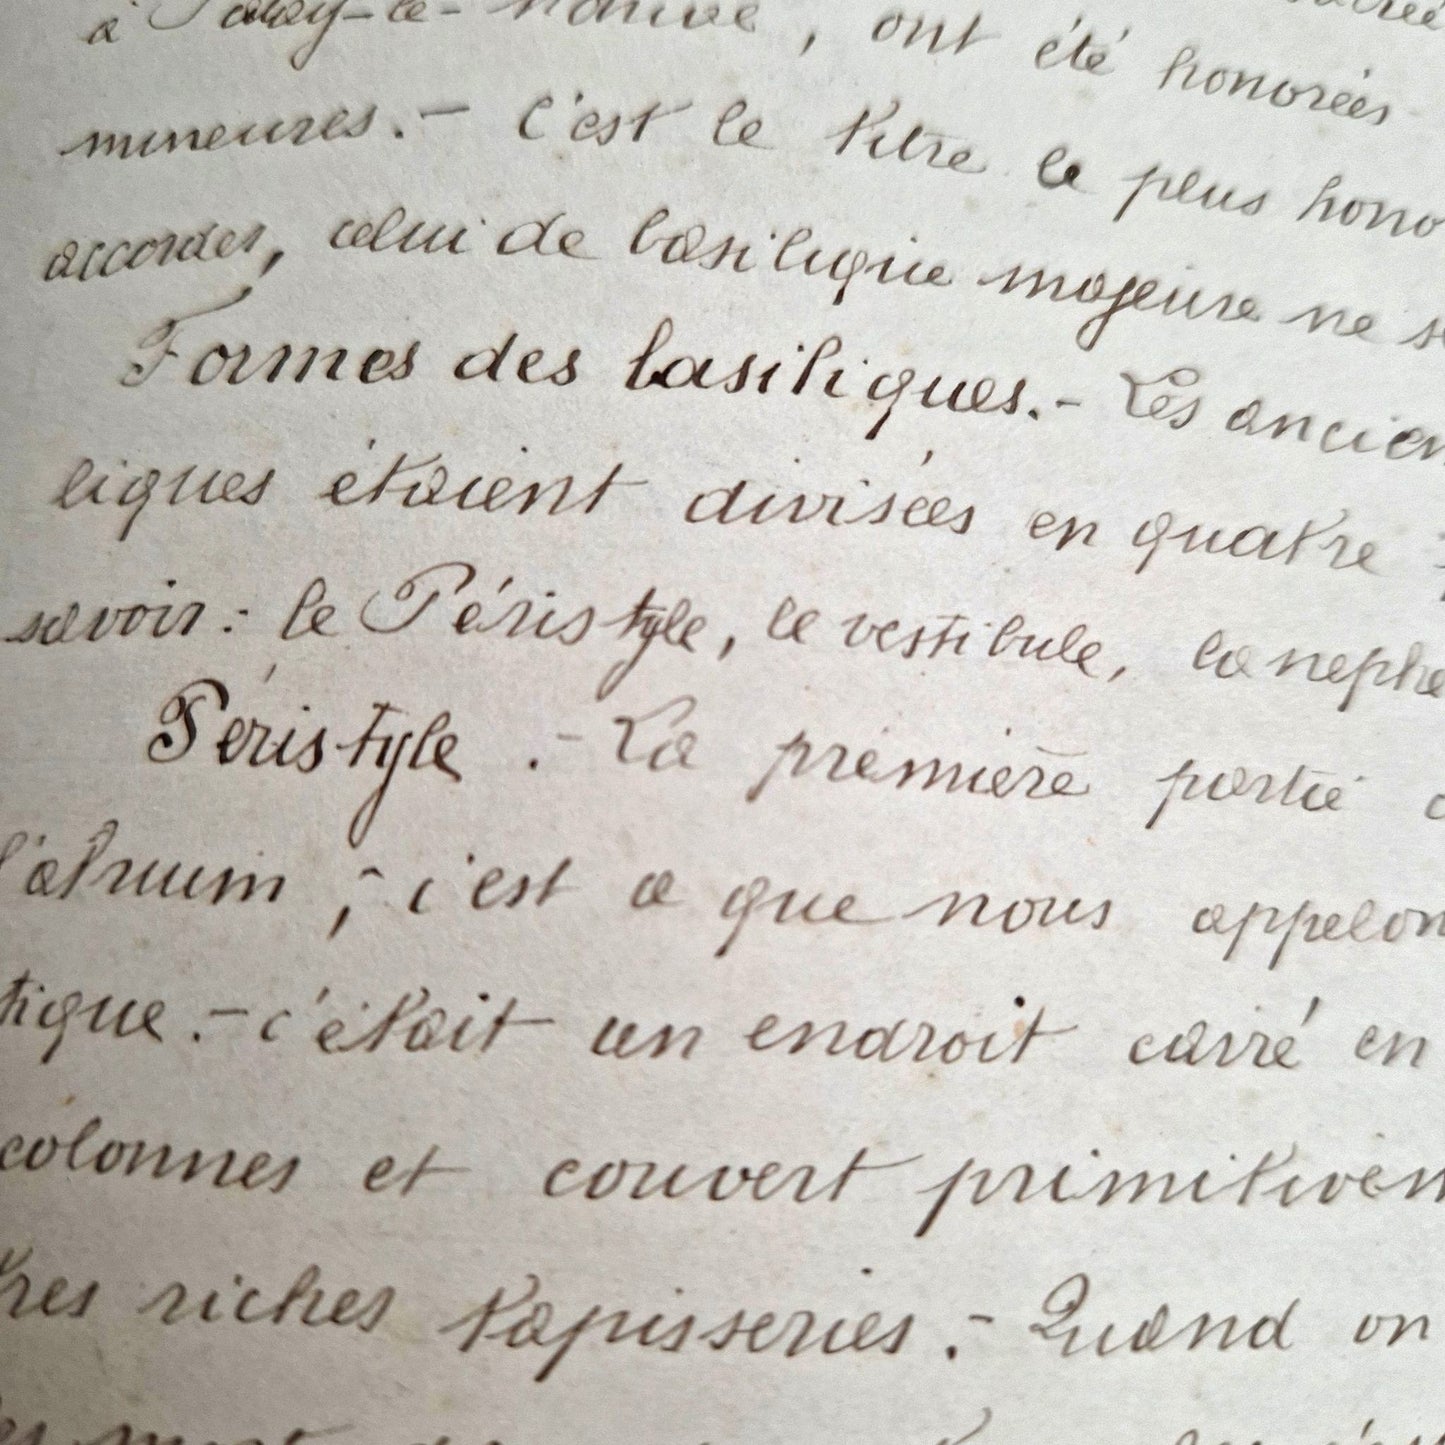 à Paray-le-, ont été honorées
mineures. - C'est le titre le plus hono
accorder, celui de basilique majeure ne s
Formes des basiliques. - Les ancien
liques étaient divisées en quatre
savoir : le Péristyle, le vestibule, la nephe
Péristyle. - La première partie
l'atrium ; - c'est ce que nous appelon
tique. - c'était un endroit carré en
colonnes et couvert primitivem
tres riches tapisseries. - Quand on